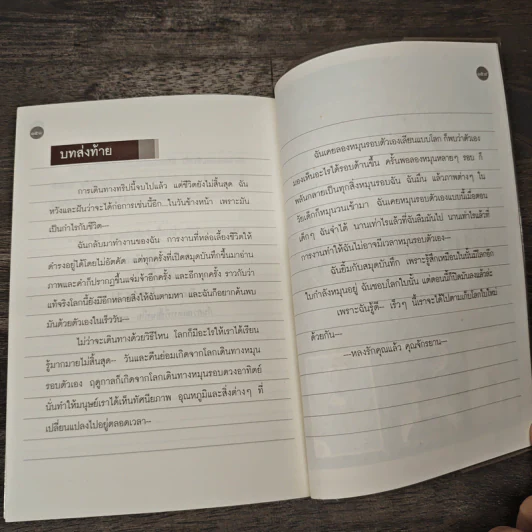 บทส่งท้าย
การเดินทางทริปนี้จบไปแล้ว แต่ชีวิตยังไม่สิ้นสุด ฉัน
หวังและฝันว่าจะได้ก่อการเช่นนี้อีก...ในวันข้างหน้า เพราะมัน
เป็นกำไรกับชีวิต--
ฉันกลับมาทำงานของฉัน การงานที่หล่อเลี้ยงชีวิตให้
ดำรงอยู่ได้โดยไม่อัตคัด แต่ทุกครั้งที่เปิดสมุดบันทึกขึ้นมาอ่าน
ภาพและคำก็ปรากฏขึ้นแจ่มจ้าอีกครั้ง และอีกทุกครั้ง ราวกับว่า
แท้จริงโลกนี้ยังมีอีกหลายสิ่งให้ฉันตามหา และฉันก็อยากค้นพบ
มันด้วยตัวเองในเร็ววัน--
ไม่ว่าจะเดินทางด้วยวิธีไหน โลกก็มีอะไรให้เราได้เรียน
รู้มากมายไม่สิ้นสุด-- วันและคืนย่อมเกิดจากโลกเดินทางหมุน
รอบตัวเอง ฤดูกาลก็เกิดจากโลกเดินทางหมุนรอบดวงอาทิตย์
นั่นทำให้มนุษย์เราได้เห็นทัศนียภาพ อุณหภูมิและสิ่งต่างๆ ที่
เปลี่ยนแปลงไปอยู่ตลอดเวลา--
ฉันเคยลองหมุนรอบตัวเองเลียนแบบโลก ก็พบว่าตัวเอง
มองเห็นอะไรได้รอบด้านขึ้น ครั้นพอลองหมุนหลายๆ รอบ ก็
พลันกลายเป็นทุกสิ่งหมุนรอบฉัน ฉันมึน แล้วภาพต่างๆ ใน
วัยเด็กก็หมุนวนเข้ามา ฉันเคยหมุนรอบตัวเองแบบนี้เมื่อตอน
เด็กๆ ฉันจำได้ นานเท่าไรแล้วที่ฉันลืมมันไป นานเท่าไรแล้วที่
การงานทำให้ฉันไม่อาจมีเวลาหมุนรอบตัวเอง--
ฉันยิ้มกับสมุดบันทึก เพราะรู้สึกเหมือนในนั้นมีโลกอีก
ใบกำลังหมุนอยู่ ฉันชอบโลกใบนั้น แต่ตอนนี้ก็ปิดมันลงแล้วล่ะ
เพราะฉันรู้ดี-- เร็วๆ นี้เราจะได้ไปตามเก็บโลกใบใหม่
ด้วยกัน--
---หลงรักคุณแล้ว คุณจักรยาน--